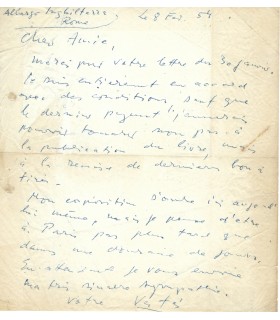 Albergo Inghilterra, Le 8 Fév. 54.
Rome
Cher Amie,
Merci pour votre lettre du 30 janvier.
Je suis entièrement en accord
avec des conditions, sauf que
le dernier payement j'aimerais
pouvoir toucher non pas à
la publication du livre, mais
à la remise de derniers bon à
tirer.
Mon exposition s'ouvre ici aujourd'
hui même, mais je pense d'être
à Paris pas plus tard que
dans une douzaine de jours.
En attendant je vous envoie
ma très sincère sympathie.
Votre